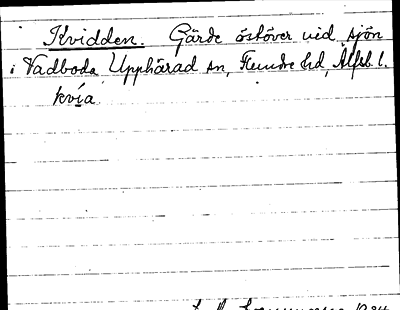 Kvidden. Gärde östöver vid sjön
i Vadboda Upphärad sn, Flundre hd, Älfsb. l.
kvía